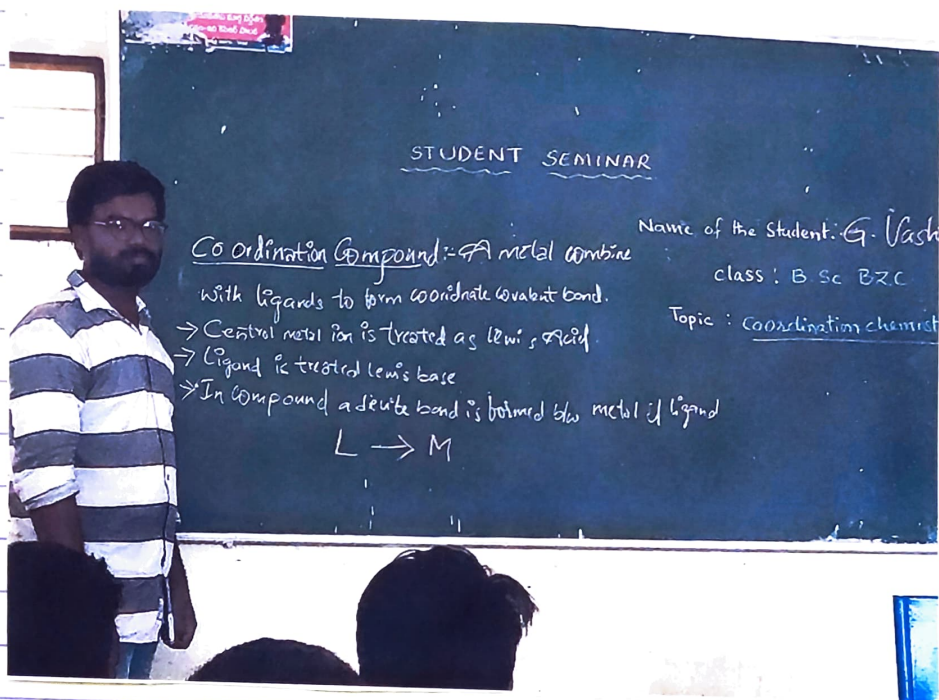 STUDENT SEMINAR
Name of the Student: G. Vash
class : B Sc BZC
Topic : Coordination chemist
Co ordination Compound :- A metal combine
with ligands to form cooridnate covalent bond.
→ Central metal ion is treated as lewi's Acid.
→ Ligand is treated lewis base
→ In compound a devite bond is formed b/w metal & ligand
L → M